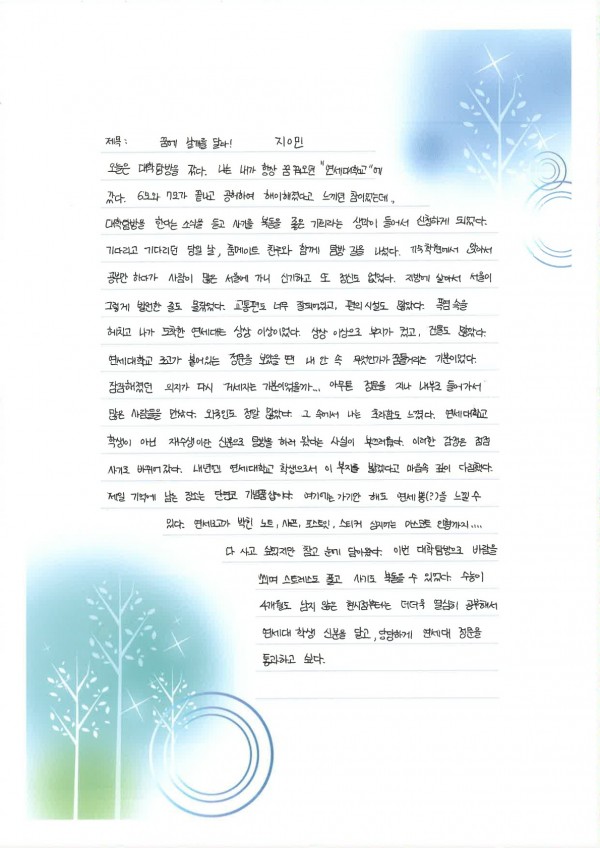 제목: 꿈에 날개를 달다! 지이민
오늘은 대학탐방을 갔다. 나는 내가 항상 꿈 꿔오던 "연세대학교"에
갔다. 6모와 7모가 끝나고 공허하여 해이해졌다고 느끼던 참이었는데,
대학탐방을 한다는 소식을 듣고 사기를 북돋을 좋은 기회라는 생각이 들어서 신청하게 되었다.
기다리고 기다리던 당일 날, 룸메이트 친구와 함께 탐방 길을 나섰다. 기숙학원에서 앉아서
공부만 하다가 사람이 많은 서울에 가니 신기하고 또 정신도 없었다. 지방에 살아서 서울이
그렇게 발전한 줄도 몰랐었다. 교통편도 너무 잘 되어있고, 편의 시설도 많았다. 폭염 속을
헤치고 나가 도착한 연세대는 상상 이상이었다. 상상 이상으로 부지가 컸고, 건물도 많았다.
연세대학교 로고가 붙어있는 정문을 보았을 땐 내 안 속 무엇인가가 꿈틀거리는 기분이었다.
잠잠해졌던 의지가 다시 거세지는 기분이었을까... 아무튼 정문을 지나 내부로 들어가서
많은 사람들을 만났다. 외국인도 정말 많았다. 그 속에서 나는 초라함도 느꼈다. 연세대학교
학생이 아닌 재수생이란 신분으로 탐방을 하러 왔다는 사실이 부끄러웠다. 이러한 감정은 점점
사기로 바뀌어 갔다. 내년엔 연세대학교 학생으로서 이 부지를 밟겠다고 마음속 깊이 다짐했다.
제일 기억에 남는 장소는 단연코 기념품샵이다. 여기에는 가기만 해도 연세 뽕(?)을 느낄 수
있다. 연세로고가 박힌 노트, 샤프, 포스트잇, 스티커 심지어는 마스코트 인형까지....
다 사고 싶었지만 참고 눈에 담아왔다. 이번 대학탐방으로 바람을
쐬며 스트레스도 풀고 사기도 북돋을 수 있었다. 수능이
4개월도 남지 않은 현시점부터는 더더욱 열심히 공부해서
연세대 학생 신분을 달고, 당당하게 연세대 정문을
통과하고 싶다.